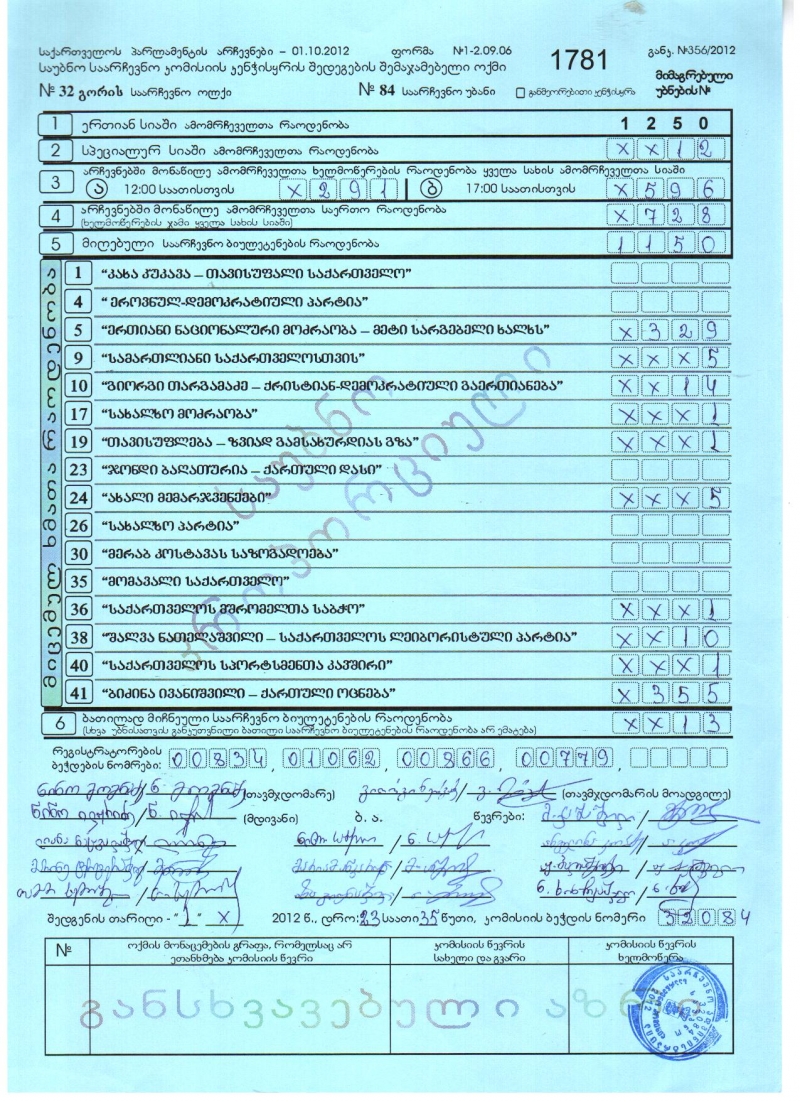 საქართველოს პარლამენტის არჩევნები – 01.10.2012 ფორმა №1-2.09.06 1781 განკ. №356/2012
საუბნო საარჩევნო კომისიის კენჭისყრის შედეგების შემაჯამებელი ოქმი
მიმაგრებული უბნების №
№ 32 გორის საარჩევნო ოლქი № 84 საარჩევნო უბანი განმეორებითი კენჭისყრა
1 ერთიან სიაში ამომრჩეველთა რაოდენობა 1 2 5 0
2 სპეციალურ სიაში ამომრჩეველთა რაოდენობა X X 1 2
3 არჩევნებში მონაწილე ამომრჩეველთა ხელმოწერების რაოდენობა ყველა სახის ამომრჩეველთა სიაში
ა 12:00 საათისთვის X 2 9 1 ბ 17:00 საათისთვის X 5 9 6
4 არჩევნებში მონაწილე ამომრჩეველთა საერთო რაოდენობა X 7 2 8
(ხელმოწერების ჯამი ყველა სახის სიაში)
5 მიღებული საარჩევნო ბიულეტენების რაოდენობა 1 1 5 0
მიცემულ ხმათა რაოდენობა
1 “კახა კუკავა – თავისუფალი საქართველო”
4 “ ეროვნულ-დემოკრატიული პარტია”
5 “ერთიანი ნაციონალური მოძრაობა – მეტი სარგებელი ხალხს” X 3 2 9
9 “სამართლიანი საქართველოსთვის” X X X 5
10 “გიორგი თარგამაძე – ქრისტიან-დემოკრატიული გაერთიანება” X X 1 4
17 “სახალხო მოძრაობა” X X X 1
19 “თავისუფლება – ზვიად გამსახურდიას გზა” X X X 1
23 “ჯონდი ბაღათურია – ქართული დასი”
24 “ახალი მემარჯვენეები” X X X 5
26 “სახალხო პარტია”
30 “მერაბ კოსტავას საზოგადოება”
35 “მომავალი საქართველო”
36 “საქართველოს მშრომელთა საბჭო” X X X 1
38 “შალვა ნათელაშვილი – საქართველოს ლეიბორისტული პარტია” X X 1 0
40 “საქართველოს სპორტსმენთა კავშირი” X X X 1
41 “ბიძინა ივანიშვილი – ქართული ოცნება” X 3 5 5
საუბნო
პროპორციული
6 ბათილად მიჩნეული საარჩევნო ბიულეტენების რაოდენობა X X 1 3
(სხვა უბნისათვის განკუთვნილი ბათილი საარჩევნო ბიულეტენების რაოდენობა არ ემატება)
რეგისტრატორების
ბეჭდების ნომრები: 00834, 01062, 00866, 00779,
(თავმჯდომარე) (თავმჯდომარის მოადგილე)
(მდივანი) ბ. ა. წევრები:
შედგენის თარიღი - “ 1 ” X 2012 წ., დრო: 23 საათი 35 წუთი, კომისიის ბეჭდის ნომერი 32084
№ ოქმის მონაცემების გრაფა, რომელსაც არ ეთანხმება კომისიის წევრი კომისიის წევრის სახელი და გვარი კომისიის წევრის ხელმოწერა
განსხვავებული აზრი